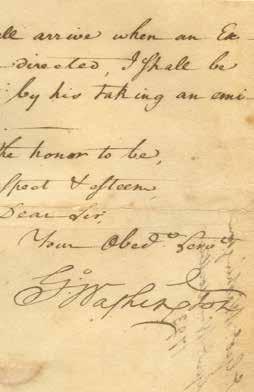 ll arrive when an Ex-
directed, I shall be
by his taking an emi-
the honor to be,
spect & esteem
Dear Sir,
Your Obedt. Servt.
Go. Washington